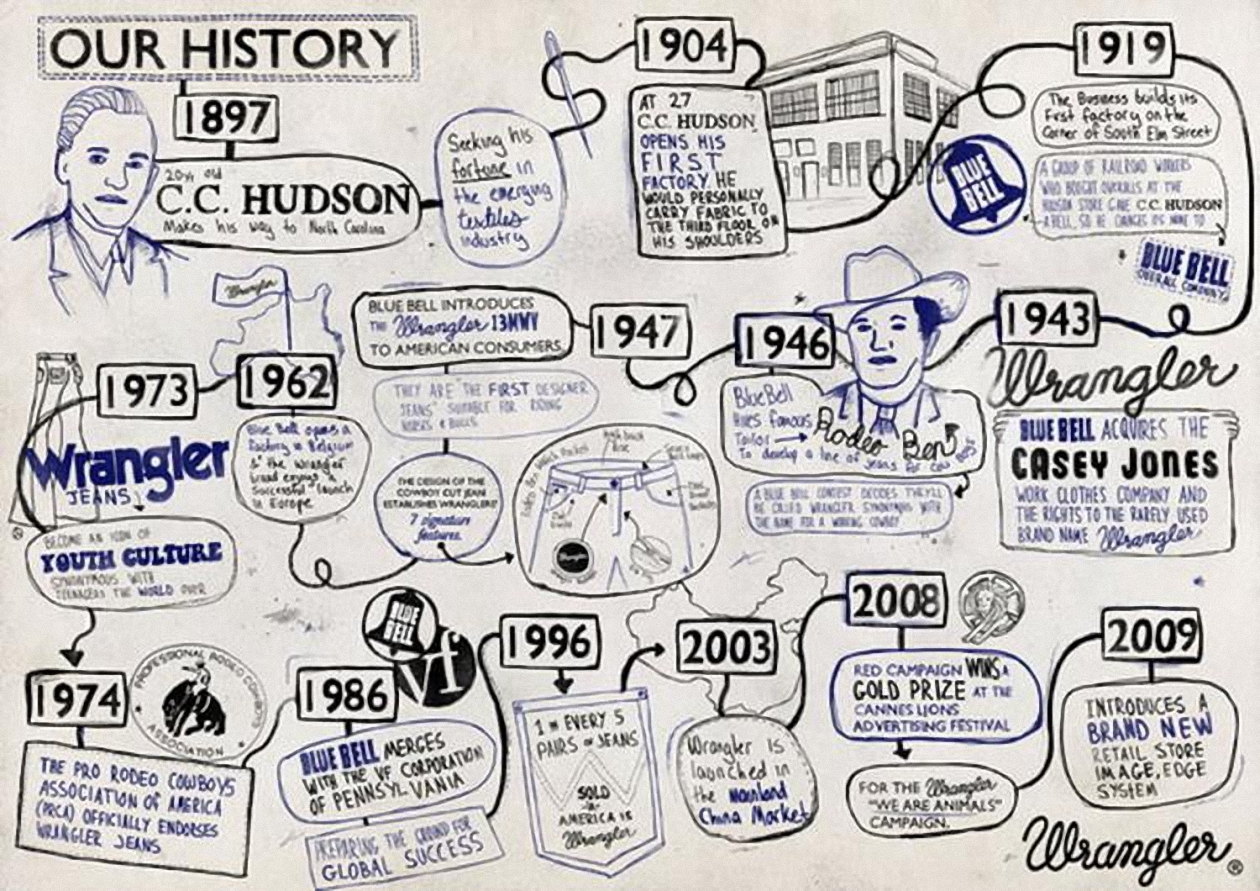 OUR HISTORY
1897
20yr old
C.C. HUDSON
Makes his way to North Carolina
Seeking his
fortune in
the emerging
textiles
industry
1904
AT 27
C.C. HUDSON
OPENS HIS
FIRST
FACTORY. HE
WOULD PERSONALLY
CARRY FABRIC TO
THE THIRD FLOOR ON
HIS SHOULDERS
1919
The Business builds its
First factory on the
Corner of South Elm Street
BLUE
BELL
A GROUP OF RAILROAD WORKERS
WHO BOUGHT OVERALLS AT THE
HUDSON STORE GAVE C.C. HUDSON
A BELL, SO HE CHANGES ITS NAME TO
BLUE BELL
OVERALL COMPANY
1943
Wrangler
BLUE BELL ACQUIRES THE
CASEY JONES
WORK CLOTHES COMPANY AND
THE RIGHTS TO THE RARELY USED
BRAND NAME Wrangler
1946
Blue Bell
Hires famous
Tailor Rodeo Ben
To develop a line of jeans for cow boys
A BLUE BELL CONTEST DECIDES THEY'LL
BE CALLED WRANGLER SYNONYMOUS WITH
THE NAME FOR A WORKING COWBOY
1947
BLUE BELL INTRODUCES
THE Wrangler 13MWY
TO AMERICAN CONSUMERS
THEY ARE "THE FIRST DESIGNER
JEANS" SUITABLE FOR RIDING
HORSES & BULLS
THE DESIGN OF THE
COWBOY CUT JEAN
ESTABLISHES WRANGLERS'
7 signature
features
high back
Rise
Wrangler
1962
Blue Bell opens a
factory in Belgium
& the Wrangler
brand enjoys a
Successful launch
in Europe
1973
Wrangler
JEANS
BECOME AN ICON OF
YOUTH CULTURE
SYNONYMOUS WITH
TEENAGERS THE WORLD OVER
1974
PROFESSIONAL RODEO COWBOYS
ASSOCIATION
THE PRO RODEO COWBOYS
ASSOCIATION OF AMERICA
(PRCA) OFFICIALLY ENDORSES
WRANGLER JEANS
1986
BLUE
BELL
vf
BLUE BELL MERGES
WITH THE VF CORPORATION
OF PENNSYLVANIA
PREPARING THE GROUND FOR
GLOBAL SUCCESS
1996
1 IN EVERY 5
PAIRS OF JEANS
SOLD
in
AMERICA IS
Wrangler
2003
Wrangler is
launched in
the Mainland
China Market
2008
RED CAMPAIGN WINS A
GOLD PRIZE AT THE
CANNES LIONS
ADVERTISING FESTIVAL
FOR THE Wrangler
"WE ARE ANIMALS"
CAMPAIGN.
2009
INTRODUCES A
BRAND NEW
RETAIL STORE
IMAGE, EDGE
SYSTEM
Wrangler®